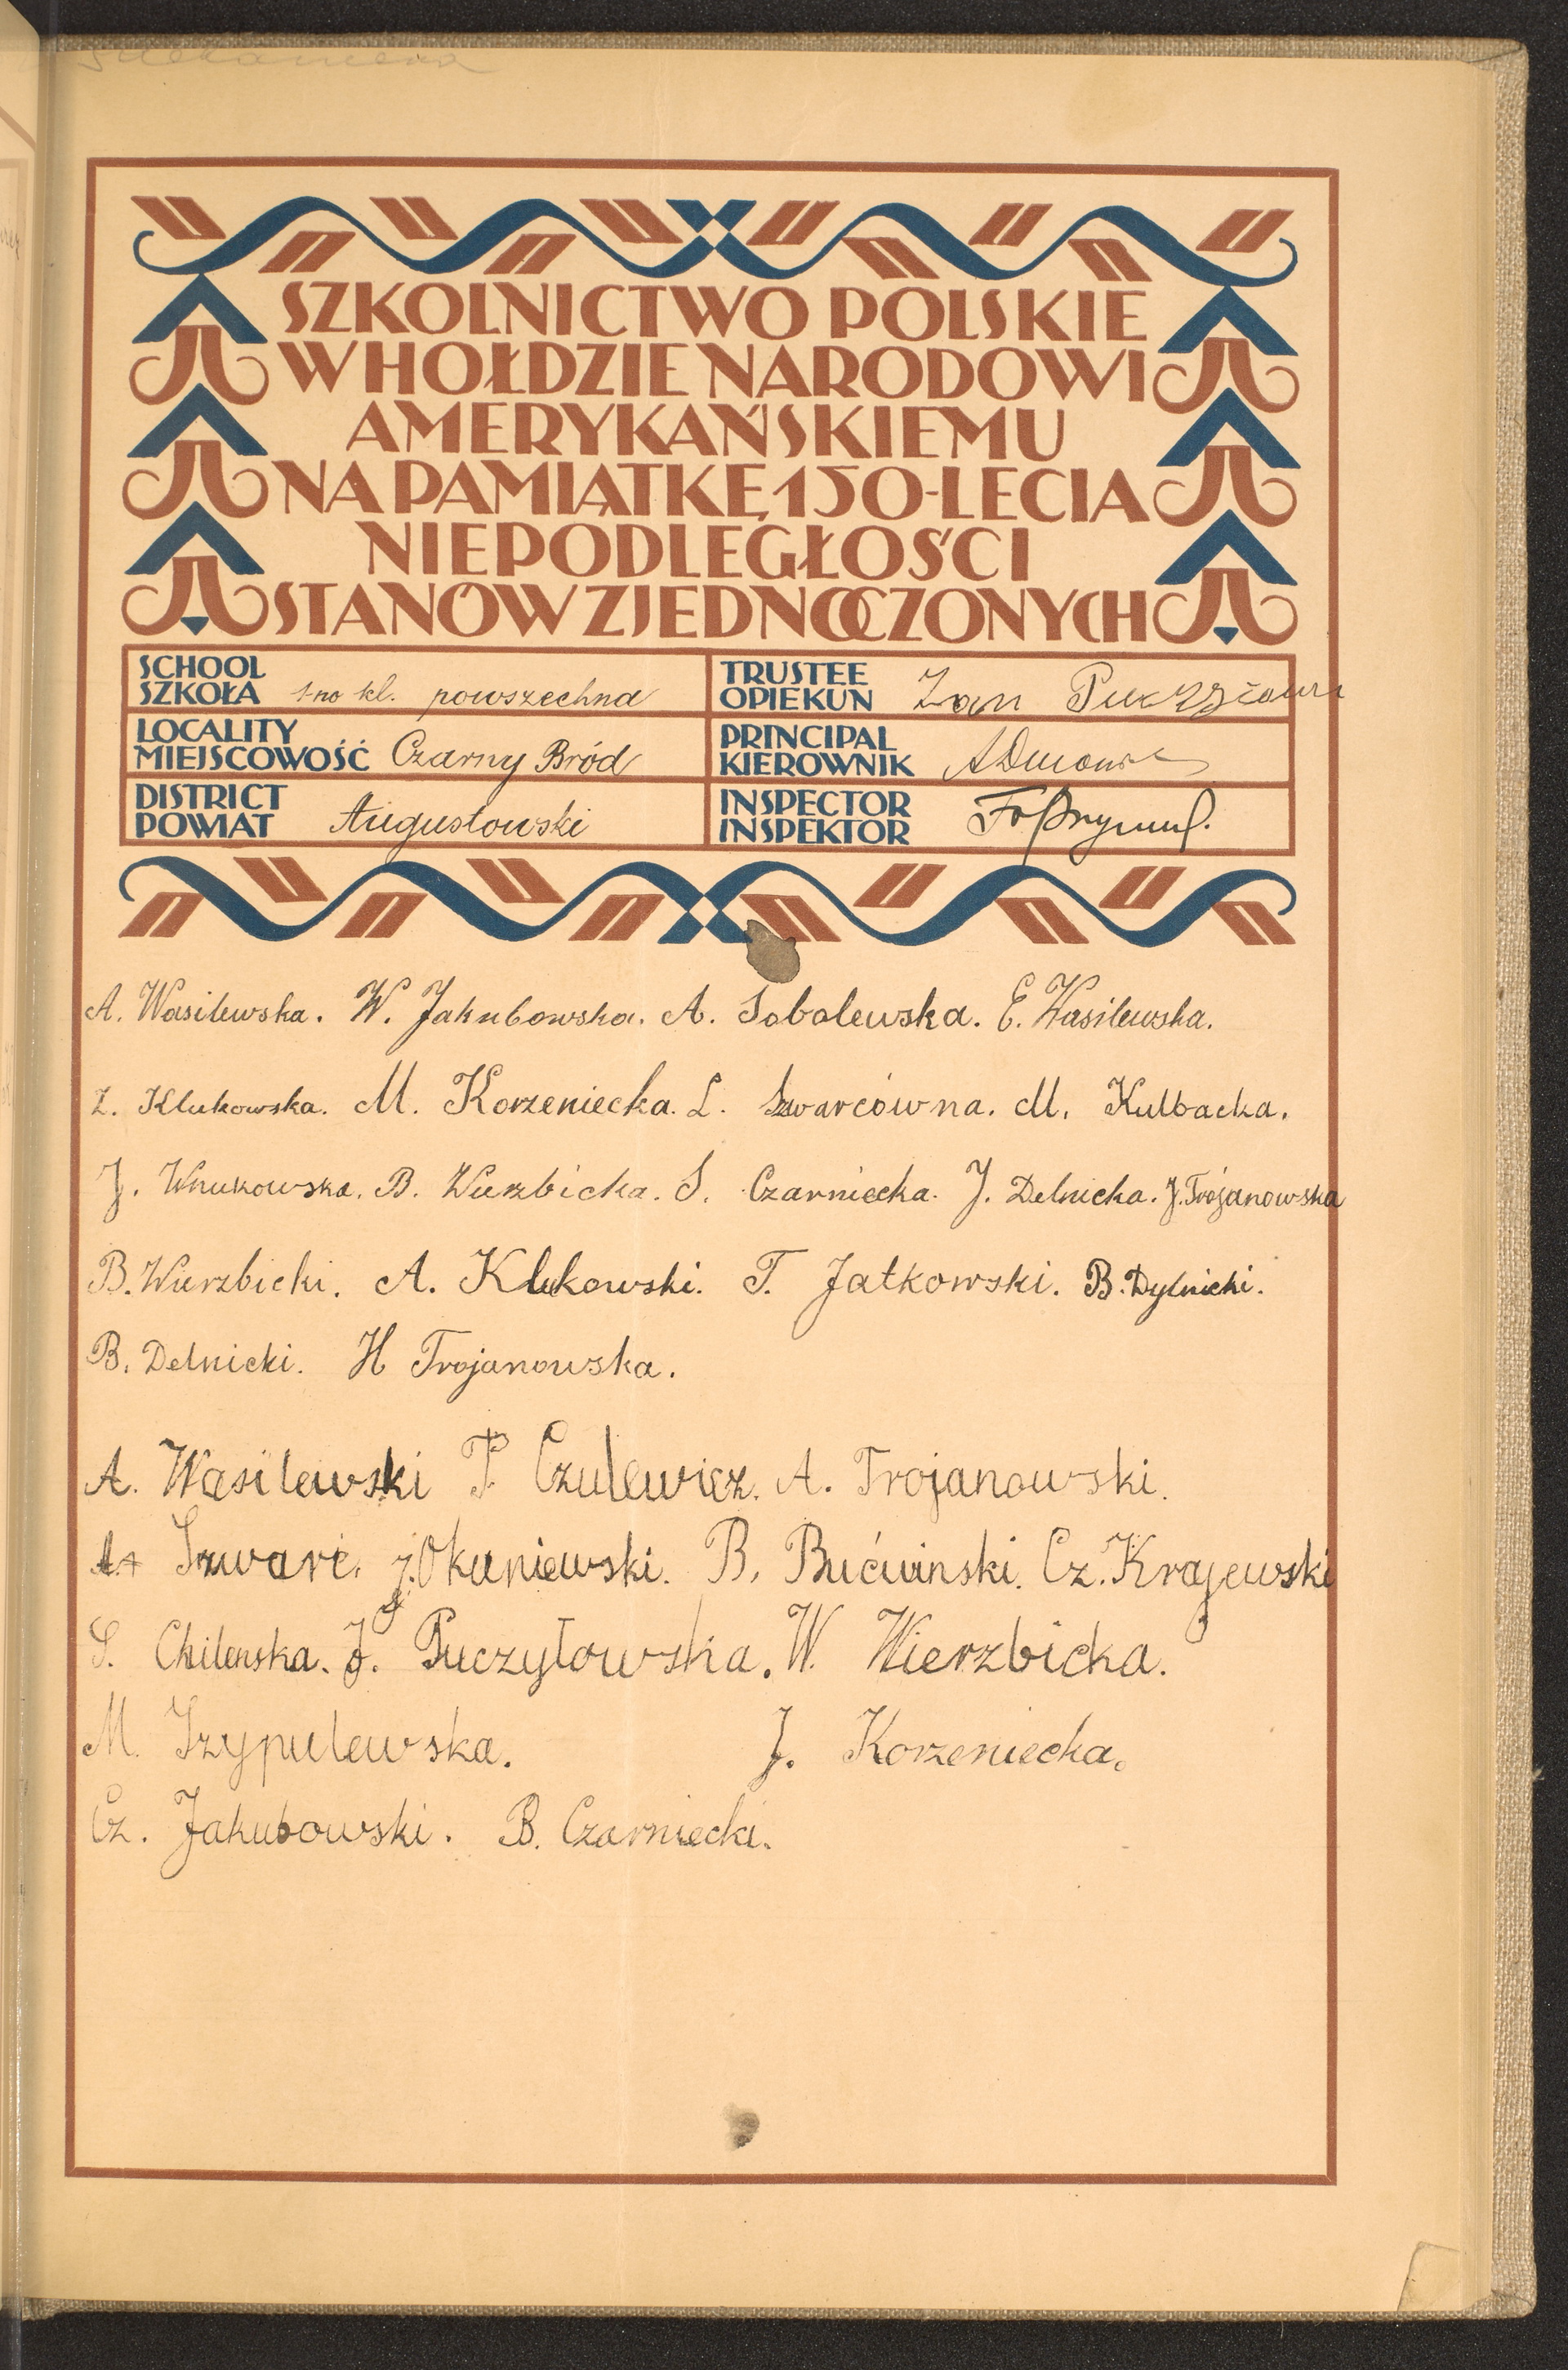 SZKOLNICTWO POLSKIE
W HOŁDZIE NARODOWI
AMERYKAŃSKIEMU
NA PAMIĄTKĘ 150-LECIA
NIEPODLEGŁOŚCI
STANÓW ZJEDNOCZONYCH
SCHOOL
SZKOŁA 1-no kl. powszechna
TRUSTEE
OPIEKUN Jan
LOCALITY
MIEJSCOWOŚĆ Czarny Bród
PRINCIPAL
KIEROWNIK
DISTRICT
POWIAT Augustowski
INSPECTOR
INSPEKTOR
A. Wasilewska. W. Jakubowska. A. Sobolewska. E. Wasilewska.
Z. Klukowska. M. Korzeniecka. L. Szwarcówna. M. Kulbacka.
J. Wnukowska. B. Wierzbicka. S. Czarniecka. J. Delnicka. J. Trojanowska
B. Wierzbicki. A. Klukowski. T. Jatkowski. B. Dylnicki.
B. Delnicki. H Trojanowska.
A. Wasilewski P. Czulewicz. A. Trojanowski.
Szwarc. J. Okuniewski. B. Bućwinski. Cz. Krajewski
S. Chilenska. J. Puczyłowska. W. Wierzbicka.
M. Szypulewska. J. Korzeniecka.
Cz. Jakubowski. B. Czarniecki.